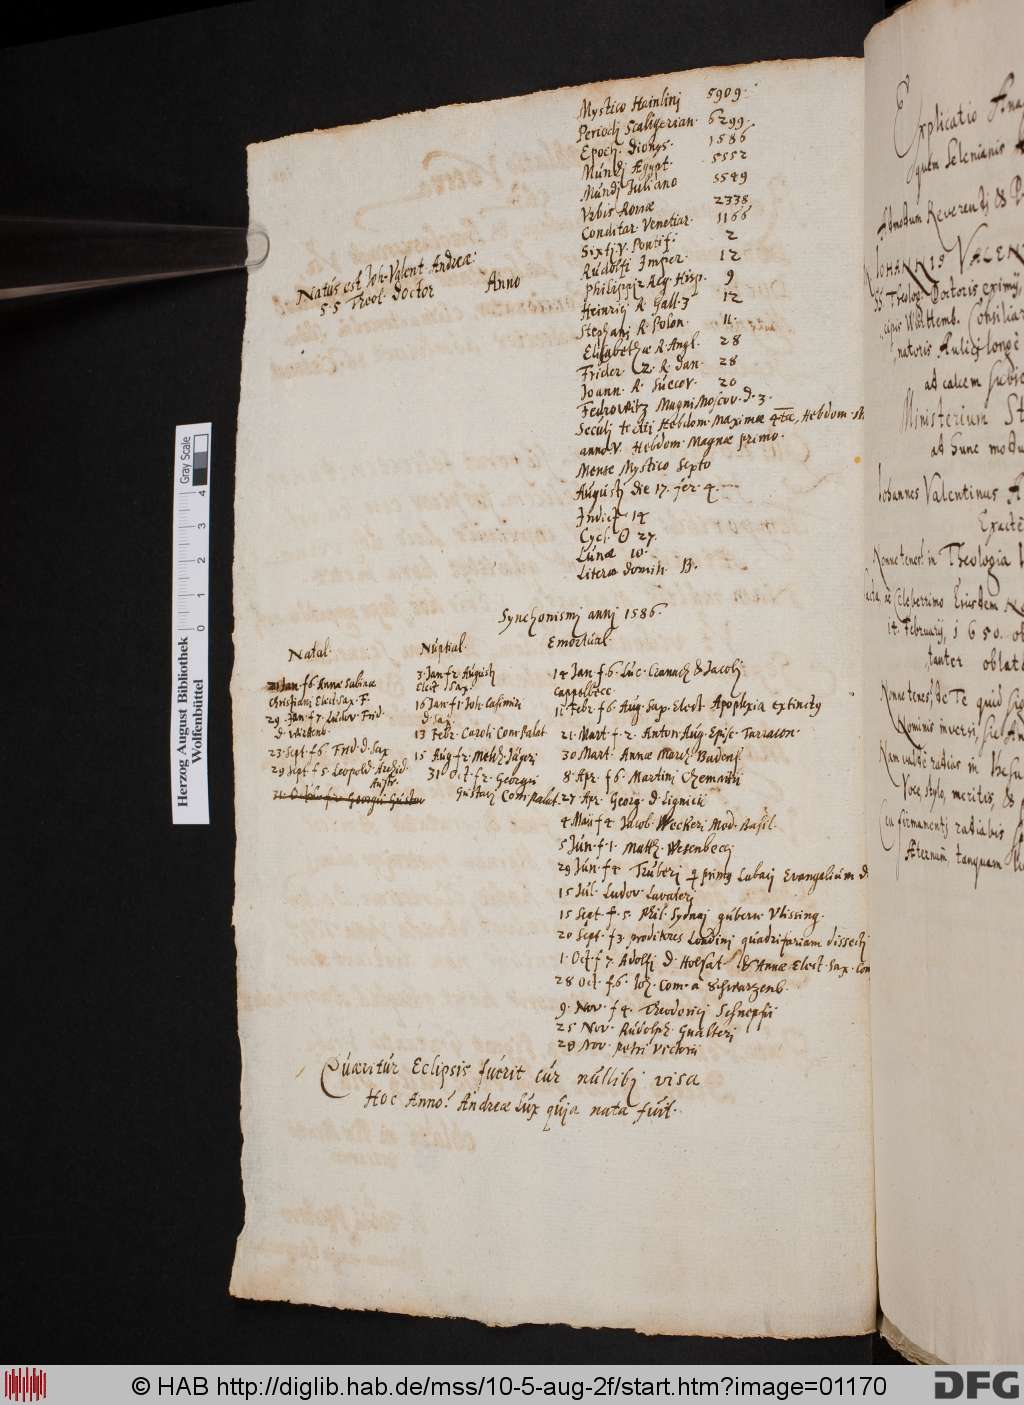 Mystico Hainlinj 5909.
Periodj Scaligerian. 6299.
Epoch. Dionys. 1586
Mundj Ægypt. 5552
Mundj Juliano 5549
Vrbis Romæ 2338
Conditar. Venetiar. 1166
Sixtj V. Pontif. 2
Natus est Joh. Valent Andreæ. Anno Rudolfi Imper. 12
S S Theol. Doctor
Philippj 2 Reg. Hisp. 9
Heinricj R. Gall. 3 12
Stephanj R. Polon. 11.
Elisabethæ R. Angl. 28
Frider. 2. R. Dan. 28
Joann. R. Suecor. 20
Fedrowitz Magni Moscov. D. 3.
Seculj tertij Hebdom. Maximæ 4tæ, Hebdom.
anno V. Hebdom. Magnæ primo.
Mense Mystico Septo
Augustj die 17. fer. 4.
Indict. 14
Cycl. ☉ 27.
Lunæ 10.
Literæ domin. B.
Synchonismj annj 1586.
Natal. Nuptial. Emortual.
21 Jan. f 6. Annæ Sabinæ
Christianj Elect. Sax. F.
29. Jan. f 7. Ludov. Frid.
D. Wirtenb.
23. Sept. f 6. Frid. D. Sax
29 Sept f 5. Leopold. Archid.
Austr.
3. Jan f 2. Augustj
Elect Sax.
16 Jan f 1. Joh. Casimiri
D. Sax.
13 Febr. Caroli Com Palat
15 Aug f 2. Melch. Jägerj
31 Oct. f 2. Georgij
Gustavj Com Palat.
14 Jan f. 6. Luc. Cranach & Jacobj
Cappelbecc.
11 Febr. f 6. Aug. Sax. Elect Apoplexia extinctj
21. Mart. f. 2. Anton. Aug. Episc. Tarracon.
30 Mart. Annæ March. Badens.
8. Apr. f 6. Martinj Chemnitii
27 Apr. Georg. D. Lignicii
4 Maii f 4. Jacob. Weckeri Med. Basil.
5 Jun. f 1. Matth. Wesenbecij
29 Jun. f 4. Truberj q primg Labacj Evangelium d
15 Jul. Ludov. Lavaterj
15 Sept. f. 5. Phil. Sydnaj gubern. Vlissing.
20 Sept. f 3. proditores Londinj quadrifariam dissectj
1. Oct. f 7. Adolfj D. Holsat. & Annæ Elect. Sax. Con
28 Oct. f. 6. Joh. Com. a Schwarzenb.
9. Nov. f 4. Theodoricj Schnepfii
25 Nov. Rudolph. Gualterj
28 Nov. Petri Victorii
Quæritur Eclipsis fuerit cur nullibj visa
Hoc Anno? Andreæ Lux quia nata fuit.
Explicatio Ana
quem Selenianis
Admodum Reverentj &
JOHANNIS VALEN
SS. Theolog. Doctoris eximij,
cipis Württemb. Consiliar
natoris Aulicj longè
ad calcem subic
Ministerium St
ad hunc modu
Johannes Valentinus A
Exactè
Nonne tenes? in Theologia
Celeberrimo Ejusdem
14. Februarij, 1650. ob
tanter oblat
Nonne tenes, de Te quid
Nominis inversi, sic An
Nam valdè radias in
Voce stylo, meritis, &
Ceu firmamentj radiabis
Æternùm, tanquam
Herzog August Bibliothek
Wolfenbüttel
0 1 2 3 4
Gray Scale
© HAB http://diglib.hab.de/mss/10-5-aug-2f/start.htm?image=01170
DFG